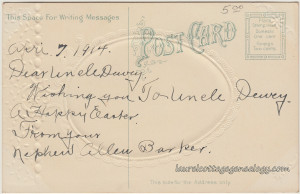 This Space for Writing Messages
5.00
POST CARD
Apri 7, 1914.
Dear Uncle Dewey.
Wishing you
To Uncle Dewey.
A Happy Easter.
From your
Nephew Allen Barker.
This side for the Address only
laurelcottagegenealogy.com